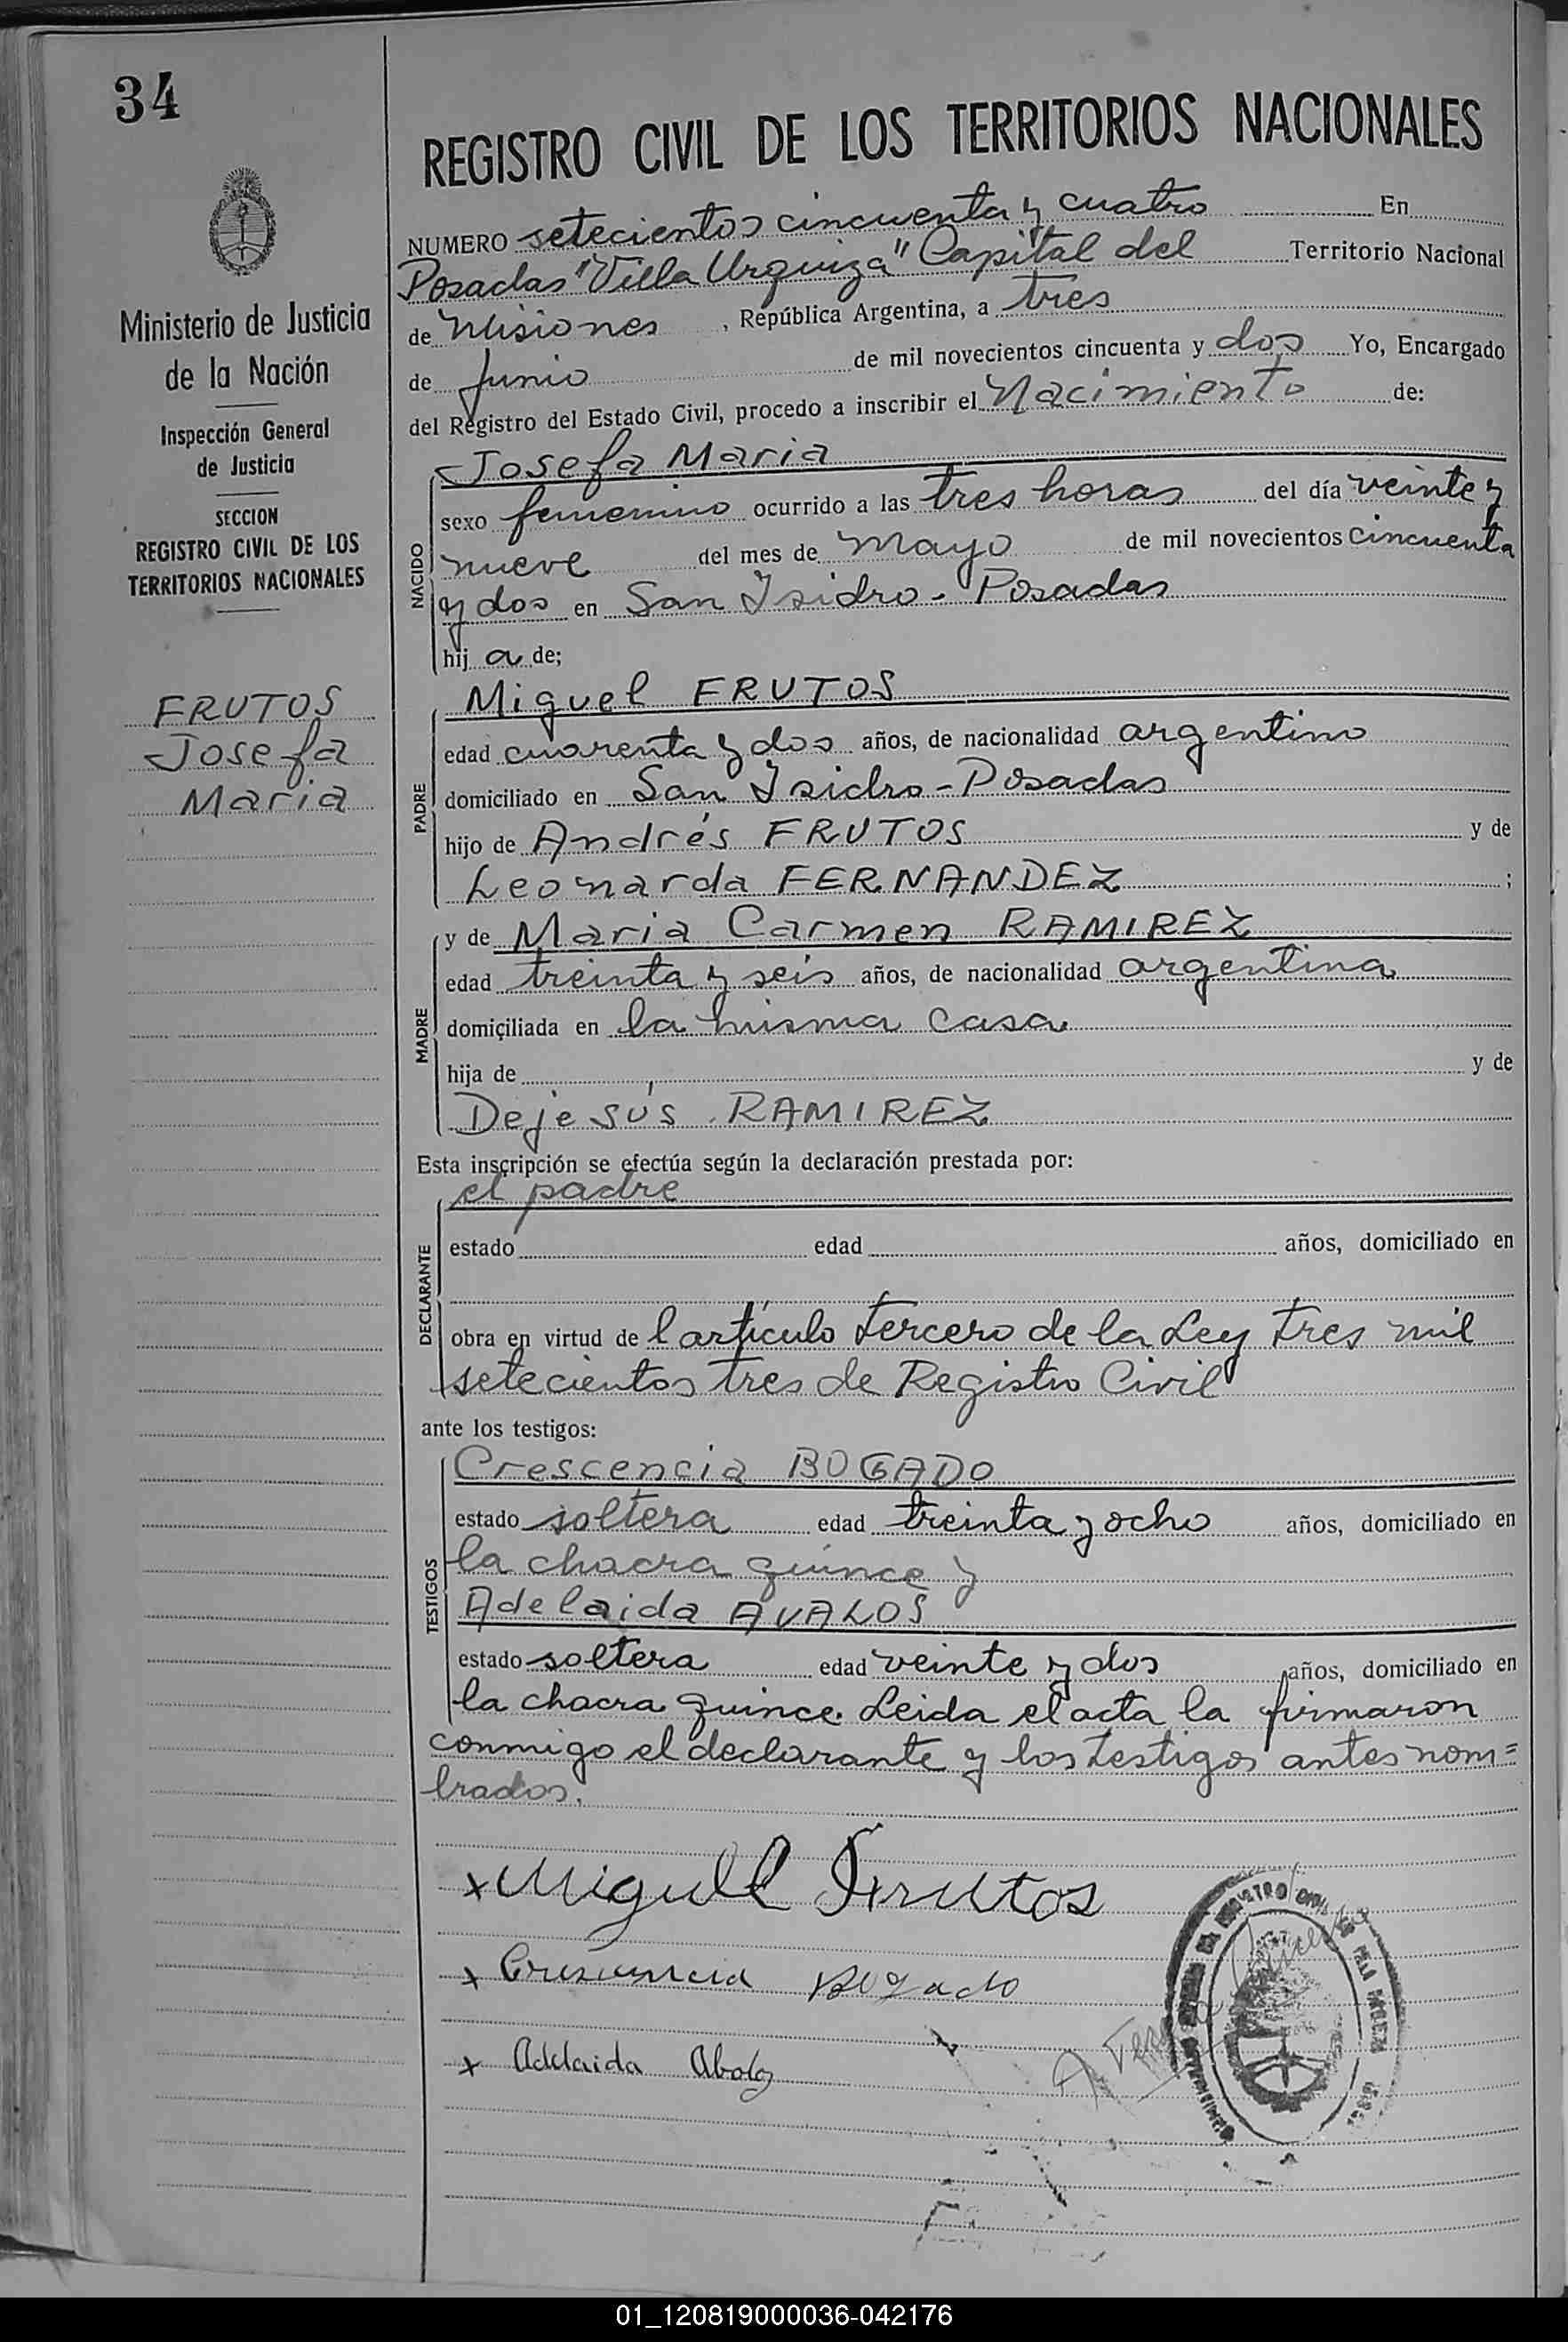 34
Ministerio de Justicia
de la Nación
Inspección General
de Justicia
SECCION
REGISTRO CIVIL DE LOS
TERRITORIOS NACIONALES
FRUTOS
Josefa
Maria
REGISTRO CIVIL DE LOS TERRITORIOS NACIONALES
NUMERO setecientos cincuenta y cuatro En
Posadas "Villa Urquiza" Capital del Territorio Nacional
de Misiones, República Argentina, a tres
de Junio de mil novecientos cincuenta y dos Yo, Encargado
del Registro del Estado Civil, procedo a inscribir el Nacimiento de:
Josefa Maria
NACIDO
sexo femenino ocurrido a las tres horas del día veinte y
nueve del mes de mayo de mil novecientos cincuenta
y dos en San Isidro - Posadas
hij a de;
Miguel FRUTOS
PADRE
edad cuarenta y dos años, de nacionalidad argentino
domiciliado en San Isidro - Posadas
hijo de Andrés FRUTOS y de
Leonarda FERNANDEZ ;
y de Maria Carmen RAMIREZ
MADRE
edad treinta y seis años, de nacionalidad argentina
domiciliada en la misma casa
hija de y de
Dejesús RAMIREZ
Esta inscripción se efectúa según la declaración prestada por:
el padre
DECLARANTE
estado edad años, domiciliado en
obra en virtud de l artículo tercero de la Ley tres mil
setecientos tres de Registro Civil
ante los testigos:
Crescencia BOGADO
TESTIGOS
estado soltera edad treinta y ocho años, domiciliado en
la chacra quince y
Adelaida AVALOS
estado soltera edad veinte y dos años, domiciliado en
la chacra quince. Leida el acta la firmaron
conmigo el declarante y los testigos antes nom=
brados.
x Miguel Frutos
x Crescencia Bogado
x Adelaida Abalos
01_120819000036-042176